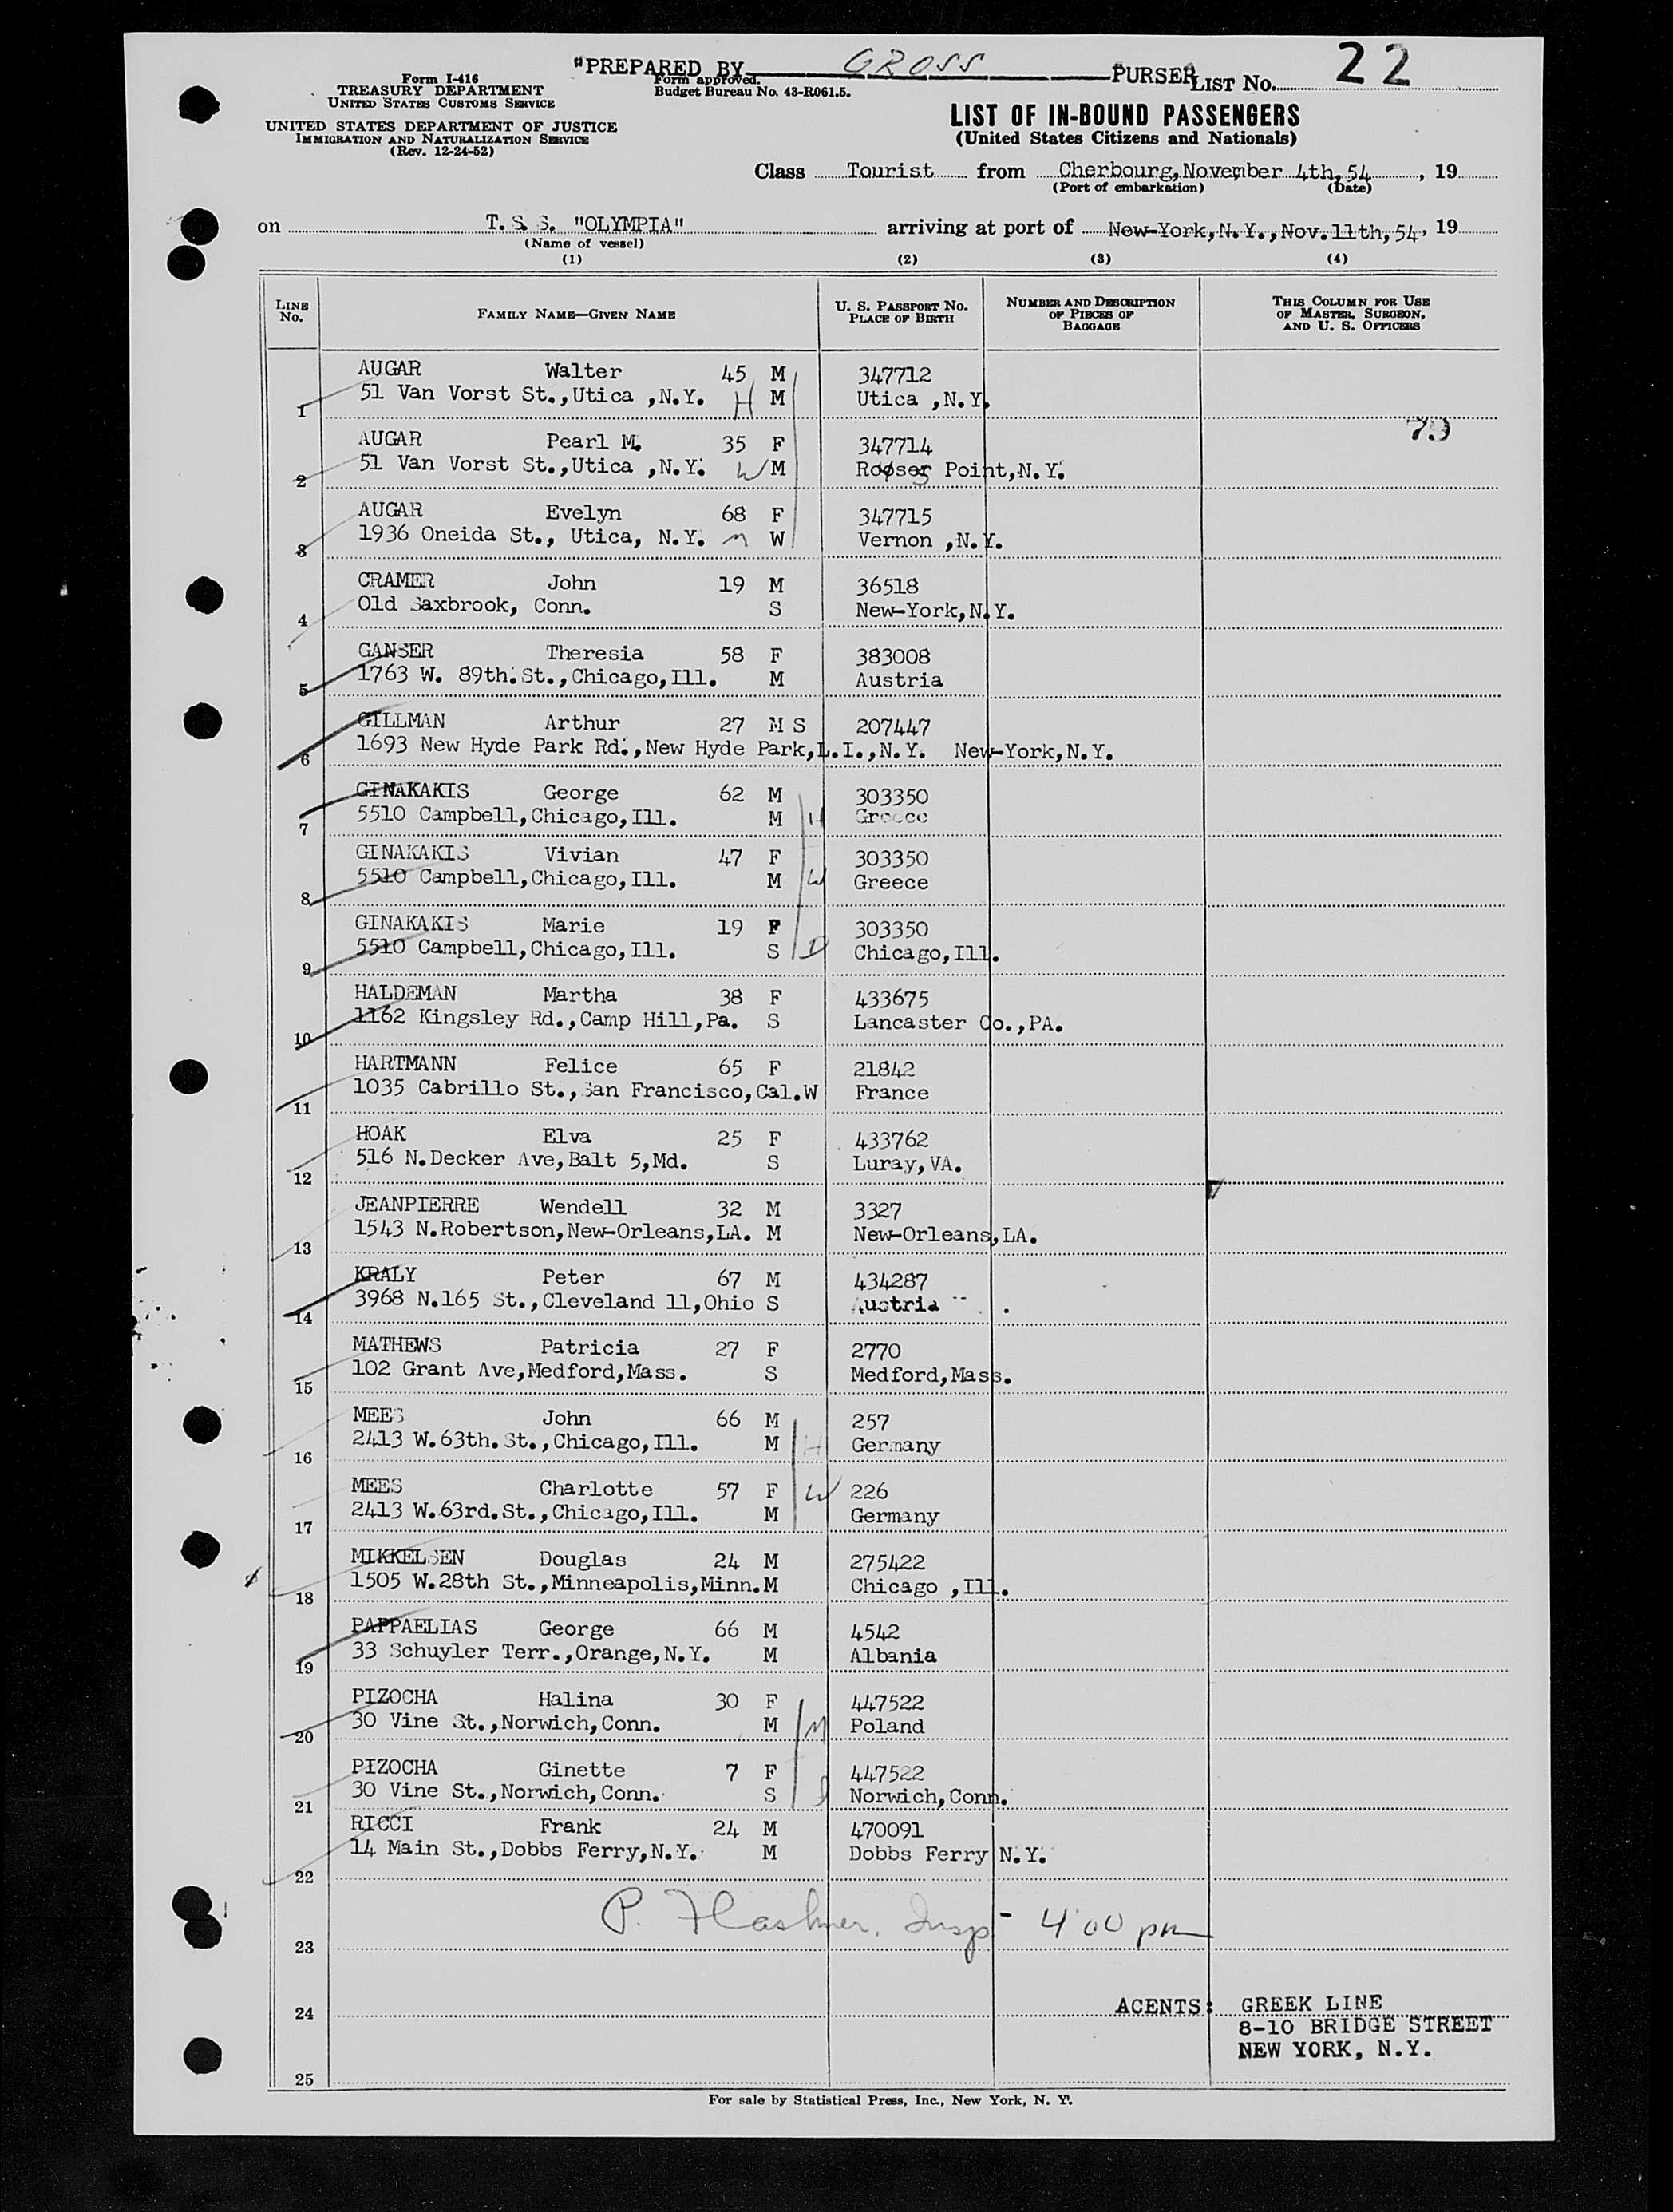 "PREPARED BY GROSS PURSER
LIST No. 22
Form I-416
TREASURY DEPARTMENT
UNITED STATES CUSTOMS SERVICE
Form approved.
Budget Bureau No. 43-R061.5.
UNITED STATES DEPARTMENT OF JUSTICE
IMMIGRATION AND NATURALIZATION SERVICE
(Rev. 12-24-52)
LIST OF IN-BOUND PASSENGERS
(United States Citizens and Nationals)
Class Tourist from Cherbourg, November 4th, 54, 19
(Port of embarkation) (Date)
on T. S. S. "OLYMPIA" arriving at port of New-York, N.Y., Nov. 11th, 54, 19
(Name of vessel)
(1) (2) (3) (4)
LINE No. FAMILY NAME—GIVEN NAME U. S. PASSPORT NO. PLACE OF BIRTH NUMBER AND DESCRIPTION OF PIECES OF BAGGAGE THIS COLUMN FOR USE OF MASTER, SURGEON, AND U. S. OFFICERS
AUGAR Walter 45 M 347712
1 51 Van Vorst St., Utica ,N.Y. H M Utica ,N.Y.
79
AUGAR Pearl M. 35 F 347714
2 51 Van Vorst St., Utica ,N.Y. W M Point, N.Y.
AUGAR Evelyn 68 F 347715
3 1936 Oneida St., Utica, N.Y. M W Vernon ,N.Y.
CRAMER John 19 M 36518
4 Old Saxbrook, Conn. S New-York, N.Y.
GANSER Theresia 58 F 383008
5 1763 W. 89th. St., Chicago, Ill. M Austria
GILLMAN Arthur 27 M S 207447
6 1693 New Hyde Park Rd., New Hyde Park, L.I., N.Y. New-York, N.Y.
GINAKAKIS George 62 M 303350
7 5510 Campbell, Chicago, Ill. M H Greece
GINAKAKIS Vivian 47 F 303350
8 5510 Campbell, Chicago, Ill. M W Greece
GINAKAKIS Marie 19 F 303350
9 5510 Campbell, Chicago, Ill. S D Chicago, Ill.
HALDEMAN Martha 38 F 433675
10 1162 Kingsley Rd., Camp Hill, Pa. S Lancaster Co., PA.
HARTMANN Felice 65 F 21842
11 1035 Cabrillo St., San Francisco, Cal. W France
HOAK Elva 25 F 433762
12 516 N. Decker Ave, Balt 5, Md. S Luray, VA.
JEANPIERRE Wendell 32 M 3327
13 1543 N. Robertson, New-Orleans, LA. M New-Orleans, LA.
KRALY Peter 67 M 434287
14 3968 N. 165 St., Cleveland 11, Ohio S Austria
MATHEWS Patricia 27 F 2770
15 102 Grant Ave, Medford, Mass. S Medford, Mass.
MEES John 66 M 257
16 2413 W. 63th. St., Chicago, Ill. M H Germany
MEES Charlotte 57 F W 226
17 2413 W. 63rd. St., Chicago, Ill. M Germany
MIKKELSEN Douglas 24 M 275422
18 1505 W. 28th St., Minneapolis, Minn. M Chicago ,Ill.
PAPPAELIAS George 66 M 4542
19 33 Schuyler Terr., Orange, N.Y. M Albania
PIZOCHA Halina 30 F 447522
20 30 Vine St., Norwich, Conn. M M Poland
PIZOCHA Ginette 7 F 447522
21 30 Vine St., Norwich, Conn. S Norwich, Conn.
RICCI Frank 24 M 470091
22 14 Main St., Dobbs Ferry, N.Y. M Dobbs Ferry N.Y.
P. Insp - 4 00 pm
23
24 ACENTS: GREEK LINE
8-10 BRIDGE STREET
NEW YORK, N.Y.
25
For sale by Statistical Press, Inc., New York, N. Y.